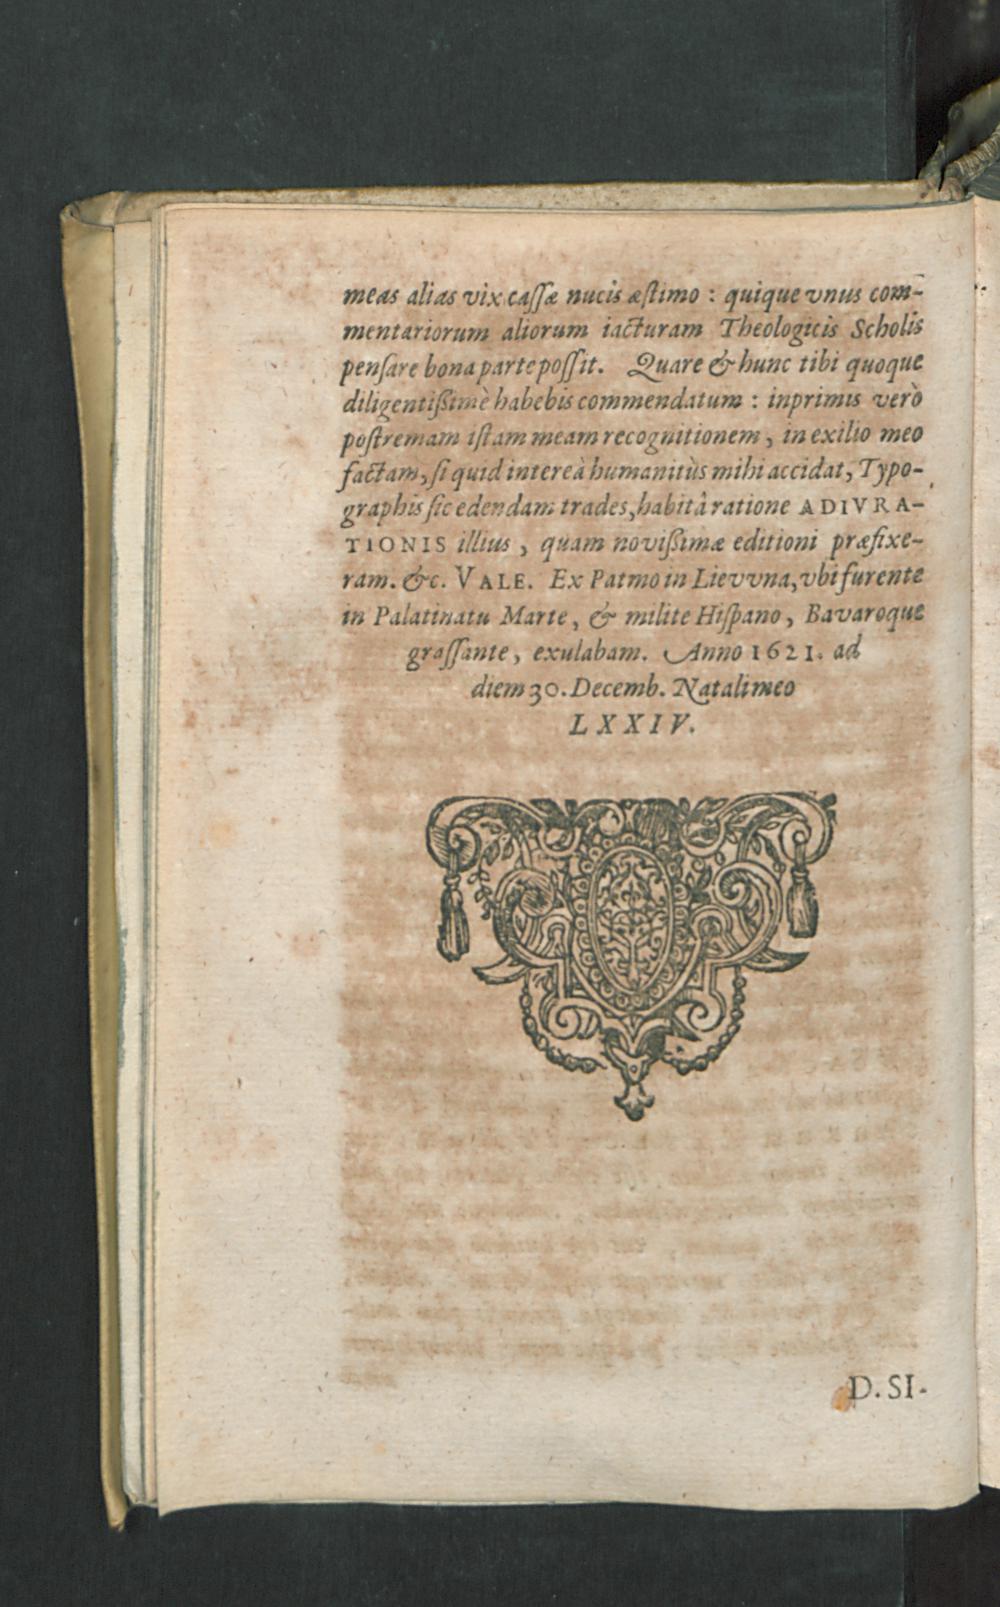 meas alias vix cassæ nucis æstimo : quique vnus com-
mentariorum aliorum iacturam Theologicis Scholis
pensare bona parte possit. Quare & hunc tibi quoque
diligentißimè habebis commendatum : inprimis verò
postremam istam meam recognitionem, in exilio meo
factam, si quid intereà humanitùs mihi accidat, Typo-
graphis sic edendam trades, habitâ ratione ADIVRA-
TIONIS illius, quam novißimæ editioni præfixe-
ram. &c. VALE. Ex Patmo in Lievvna, vbi furente
in Palatinatu Marte, & milite Hispano, Bavaroque
grassante, exulabam. Anno 1621. ad
diem 30. Decemb. Natali meo
LXXIV.
D. SI-